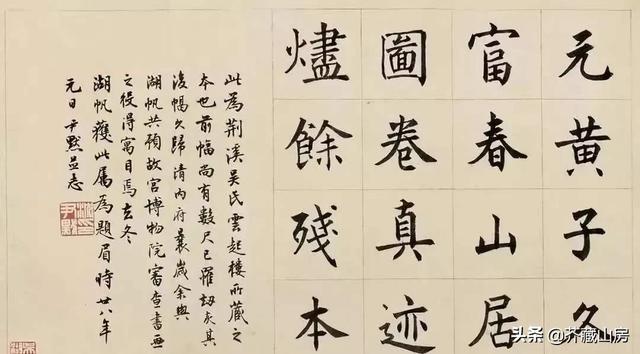 元黄子久
富春山居
圖卷真迹
燼餘殘本
此為荆溪吳氏雲起樓所藏之
本也前幅尚有數尺已罹劫灰其
後幅久歸清内府曩歲余與
湖帆共預故宮博物院審查書畫
之役得寓目焉去冬
湖帆獲此屬為題眉時廿八年
元日尹默并志
头条 @芥藏山房